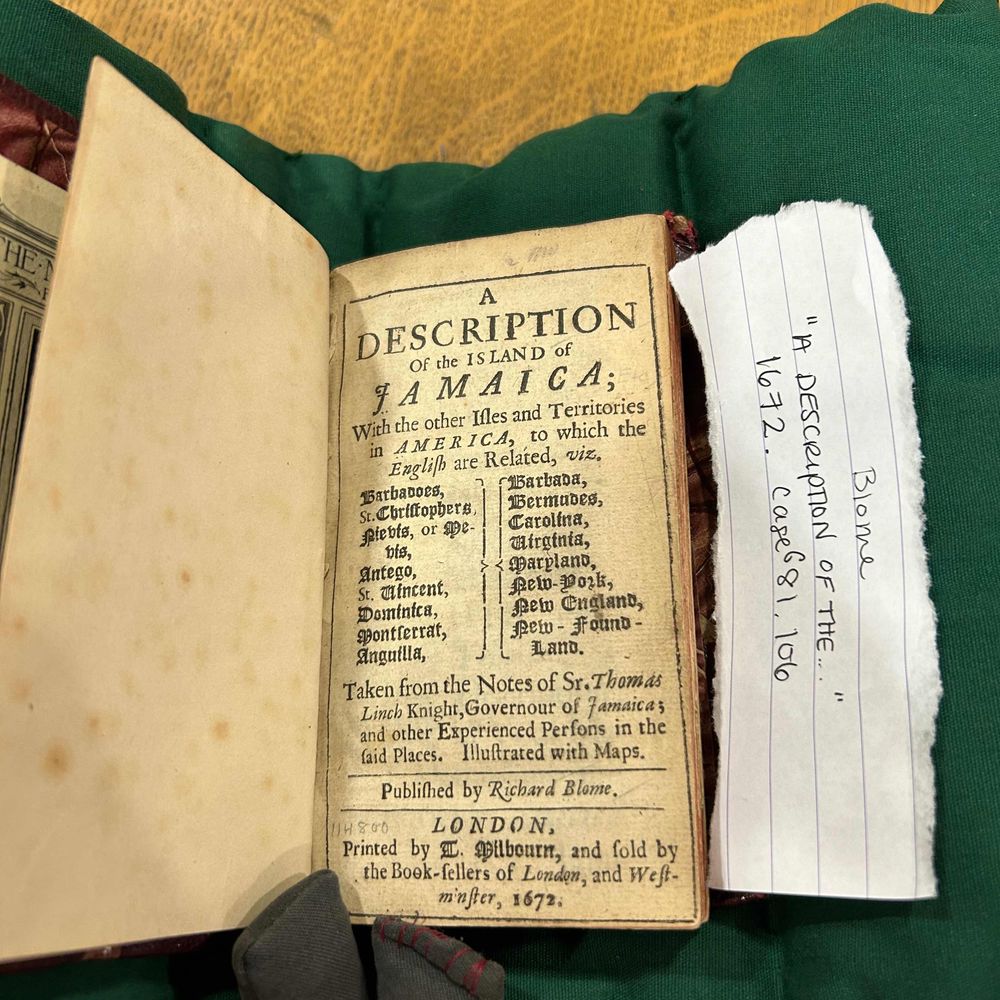 THE
A
DESCRIPTION
Of the ISLAND of
JAMAICA;
With the other Iſles and Territories
in AMERICA, to which the
Engliſh are Related, viz.
Barbadoes,
St. Chriſtophers,
Nievis, or Me-
vis,
Antego,
St. Vincent,
Dominica,
Montſerrat,
Anguilla,
Barbada,
Bermudes,
Carolina,
Virginia,
Maryland,
New-York,
New England,
New-Found-
Land.
Taken from the Notes of Sr. Thomas
Linch Knight, Governour of Jamaica;
and other Experienced Perſons in the
ſaid Places. Illuſtrated with Maps.
Publiſhed by Richard Blome.
114800
LONDON,
Printed by T. Milbourn, and ſold by
the Book-ſellers of London, and Weſt-
minſter, 1672.
Blome
"A DESCRIPTION OF THE..."
1672. Case G 81.106